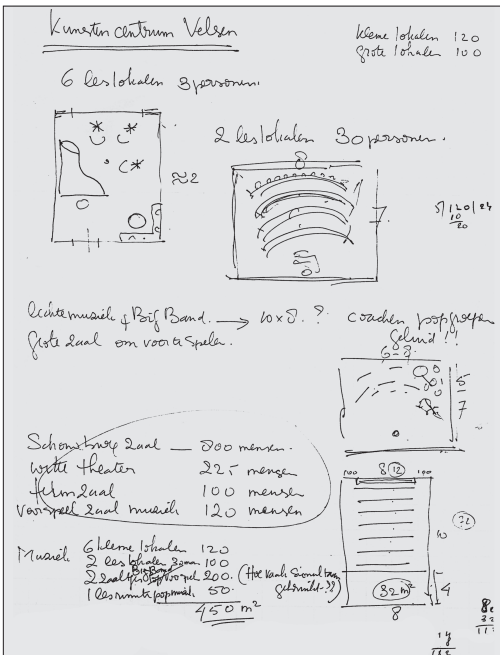 Kunsten centrum Velsen
kleine lokalen 120
grote lokalen 100
6 leslokalen 3 personen.
≈2
2 leslokalen 30 personen.
8
7
5/120/24
10
20
lichte muziek & Big Band. → 10x8.?
coachen popgroepen
geluid!!
Grote zaal om voor te spelen.
6-8
5
7
Schouwburg zaal — 800 mensen.
witte theater 225 mensen
filmzaal 100 mensen
voorspeel zaal muziek 120 mensen
100 8 (12) 100
(72)
10
Muziek 6 kleine lokalen 120
2 leslokalen 100
Big Band
200.
(Hoe vaak
gebruikt??)
1 lesruimte popmuziek 50.
450 m²
32 m²
4
8